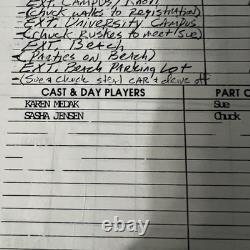 EXT. Campus /
(Chuck walks to Registration)
EXT. University Campus
(Chuck Rushes to meet Sue)
EXT. Beach
(Parties on Beach)
EXT. Beach Parking Lot
(Sue & Chuck steal CAR & drive off
CAST & DAY PLAYERS PART O
KAREN MEDAK Sue
SASHA JENSEN Chuck
ebay